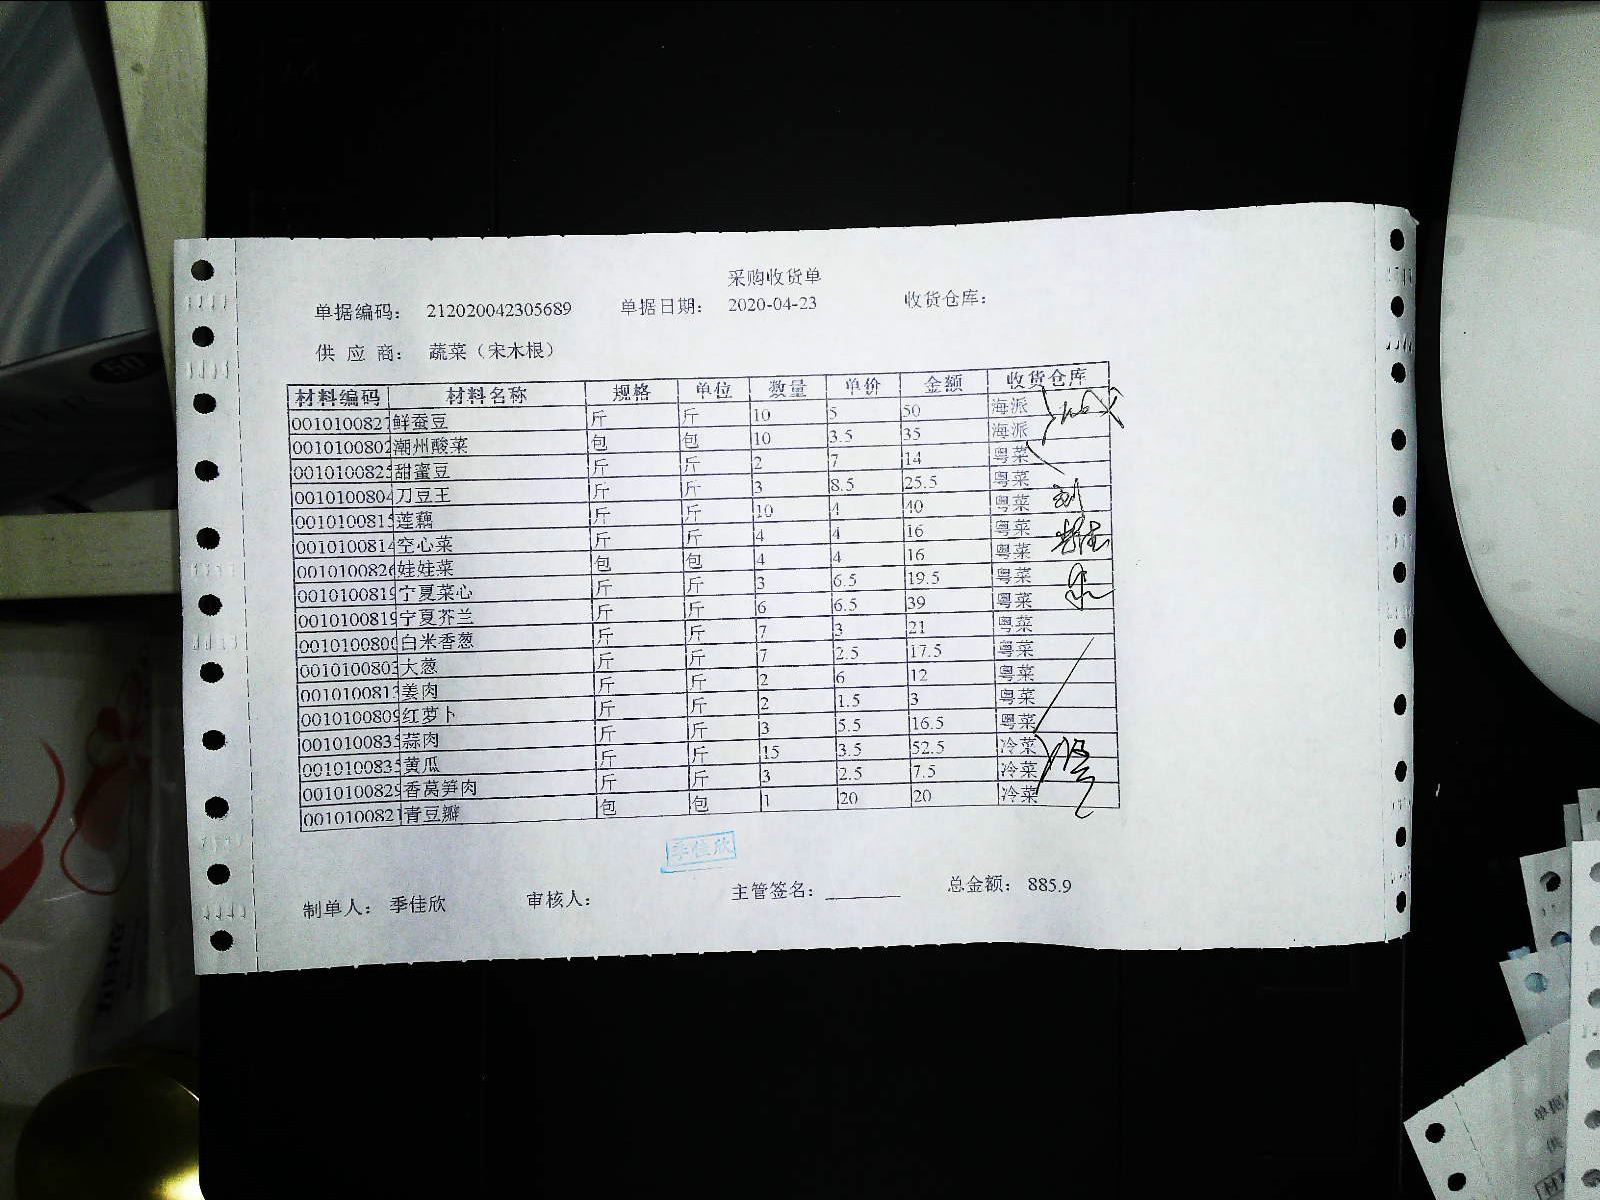 采购收货单
单据编码： 212020042305689 单据日期： 2020-04-23 收货仓库：
供 应 商： 蔬菜（宋木根）
材料编码 材料名称 规格 单位 数量 单价 金额 收货仓库
0010100827 鲜蚕豆 斤 斤 10 5 50 海派
0010100802 潮州酸菜 包 包 10 3.5 35 海派
0010100825 甜蜜豆 斤 斤 2 7 14 粤菜
0010100804 刀豆王 斤 斤 3 8.5 25.5 粤菜
0010100815 莲藕 斤 斤 10 4 40 粤菜
0010100814 空心菜 斤 斤 4 4 16 粤菜
0010100826 娃娃菜 包 包 4 4 16 粤菜
0010100819 宁夏菜心 斤 斤 3 6.5 19.5 粤菜
0010100819 宁夏芥兰 斤 斤 6 6.5 39 粤菜
0010100800 白米香葱 斤 斤 7 3 21 粤菜
0010100803 大葱 斤 斤 7 2.5 17.5 粤菜
0010100813 姜肉 斤 斤 2 6 12 粤菜
0010100809 红萝卜 斤 斤 2 1.5 3 粤菜
0010100835 蒜肉 斤 斤 3 5.5 16.5 粤菜
0010100835 黄瓜 斤 斤 15 3.5 52.5 冷菜
0010100829 香莴笋肉 斤 斤 3 2.5 7.5 冷菜
0010100821 青豆瓣 包 包 1 20 20 冷菜
季佳欣
制单人： 季佳欣 审核人： 主管签名： 总金额： 885.9